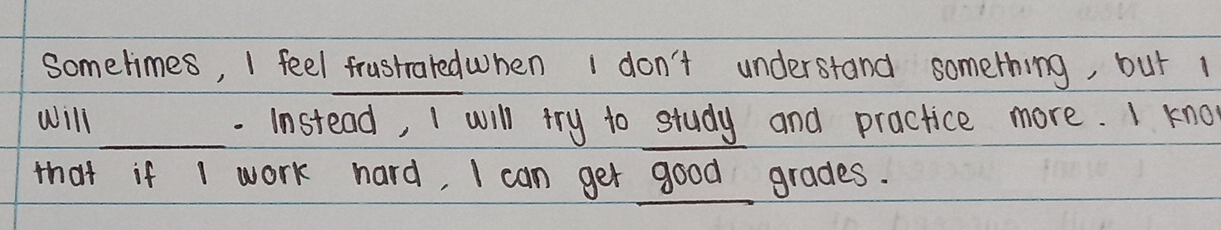 Sometimes, I feel frustrated when I don't understand something, but I
will ______. Instead, I will try to study and practice more. I kno
that if I work hard, I can get good grades.